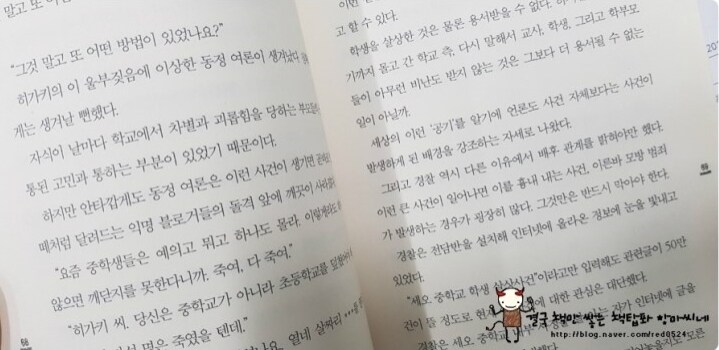 말고 또 어
"그것 말고 또 어떤 방법이 있었나요?"
히가키의 이 울부짖음에 이상한 동정 여론이 생겨났다
게는 생겨날 뻔했다.
자식이 날마다 학교에서 차별과 괴롭힘을 당하는
통된 고민과 통하는 부분이 있었기 때문이다.
하지만 안타깝게도 동정 여론은 이런 사건이 생기면
떼처럼 달려드는 익명 블로거들의 돌격 앞에 깨끗이
"요즘 중학생들은 예의고 뭐고 하나도 몰라.
않으면 깨닫지를 못한다니까. 죽여, 다 죽여."
"히가키 씨. 당신은 중학교가 아니라 초등학교를
명은 죽였을 텐데."
고 할 수 있다.
학생을 살상한 것은 물론 용서받을 수 없다.
기까지 몰고 간 학교 측, 다시 말해서 교사, 학생, 그리고 학부모
들이 아무런 비난도 받지 않는 것은 그보다 더 용서될 수 없는
일이 아닐까.
세상의 이런 '공기'를 알기에 언론도 사건 자체보다는 사건이
발생하게 된 배경을 강조하는 자세로 나왔다.
그리고 경찰 역시 다른 이유에서 배후 관계를 밝혀야만 했다.
이런 큰 사건이 일어나면 이를 흉내 내는 사건, 이른바 모방 범죄
가 발생하는 경우가 굉장히 많다. 그것만은 반드시 막아야 한다.
경찰은 전담반을 설치해 인터넷에 올라온 정보에 눈을 빛내고
있었다.
"세오 중학교 학생 살상사건"이라고만 입력해도 관련글이 50만
건이 될 정도로 현 에 대한 관심은 대단했다.
경찰은 세오 중학교 가 인터넷에 글을
결국 책만 쌓는 책탑파 항마씨네
http://blog.naver.com/red0524